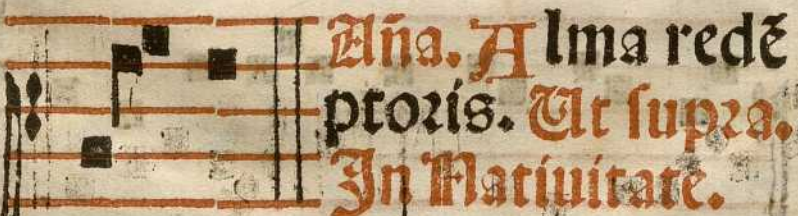 Aña. Alma redē
ptoris. Ut supra.
In Natiuitate.